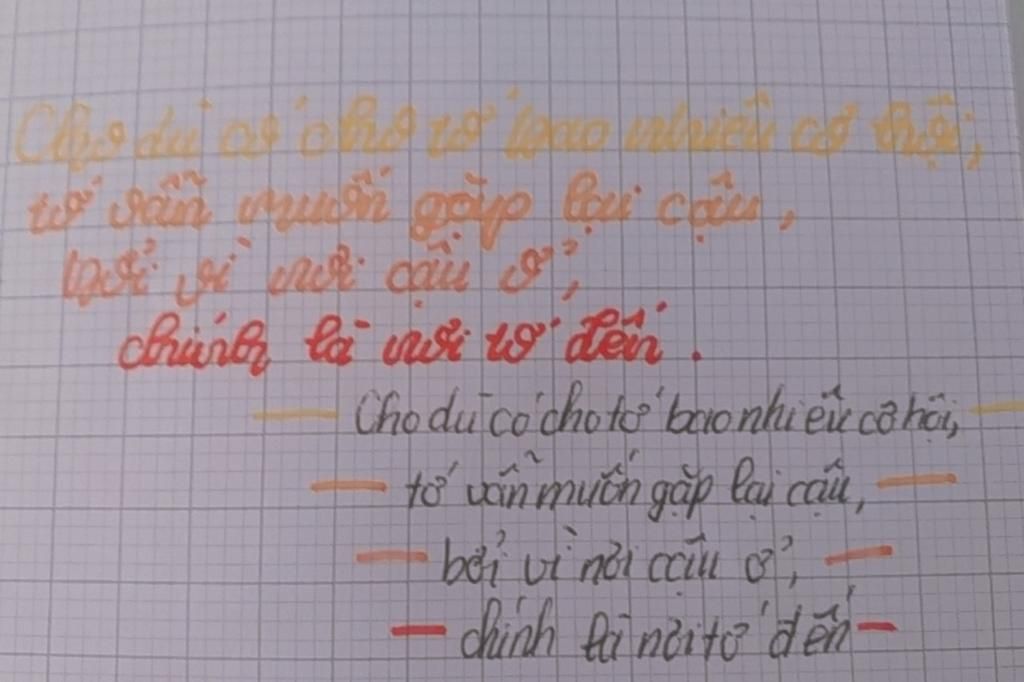 Cho dù có cho tớ bao nhiêu cơ hội,
tớ vẫn muốn gặp lại cậu,
bởi vì nơi cậu ở,
chính là nơi tớ đến.
Cho dù có cho tớ bao nhiêu cơ hội,
tớ vẫn muốn gặp lại cậu,
bởi vì nơi cậu ở,
chính là nơi tớ đến